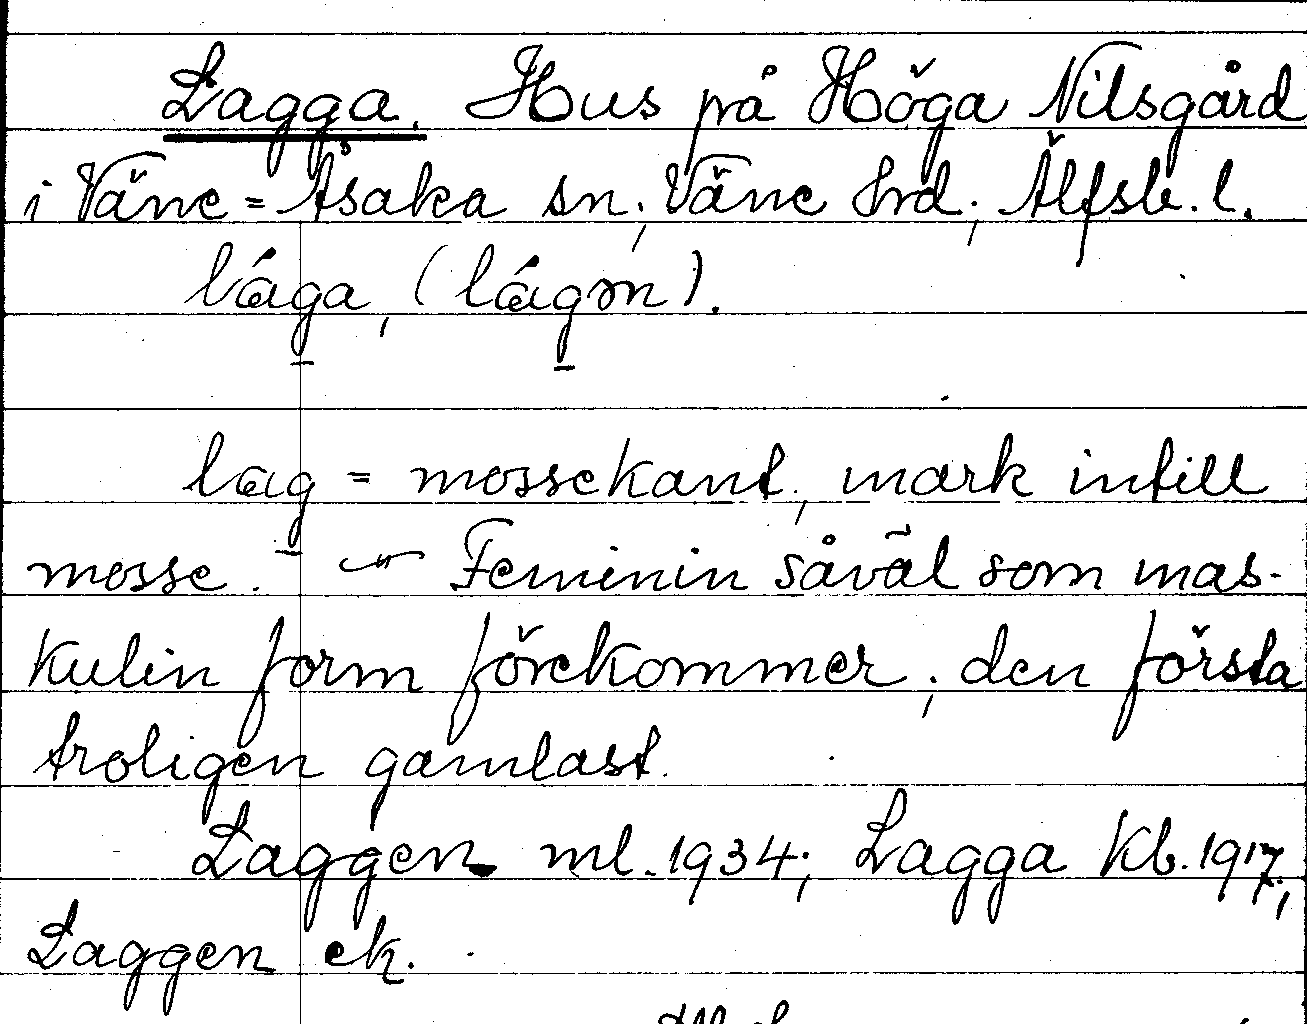 Lagga. Hus på Höga Nilsgård
i Väne-Åsaka sn; Väne hrd; Älfsb. l.
lága, (lágøn).
lag = mossekant; mark intill
mosse. — Feminin såväl som mas-
kulin form förekommer; den första
troligen gamlast.
Laggen ml. 1934; Lagga kb. 1917;
Laggen ek.